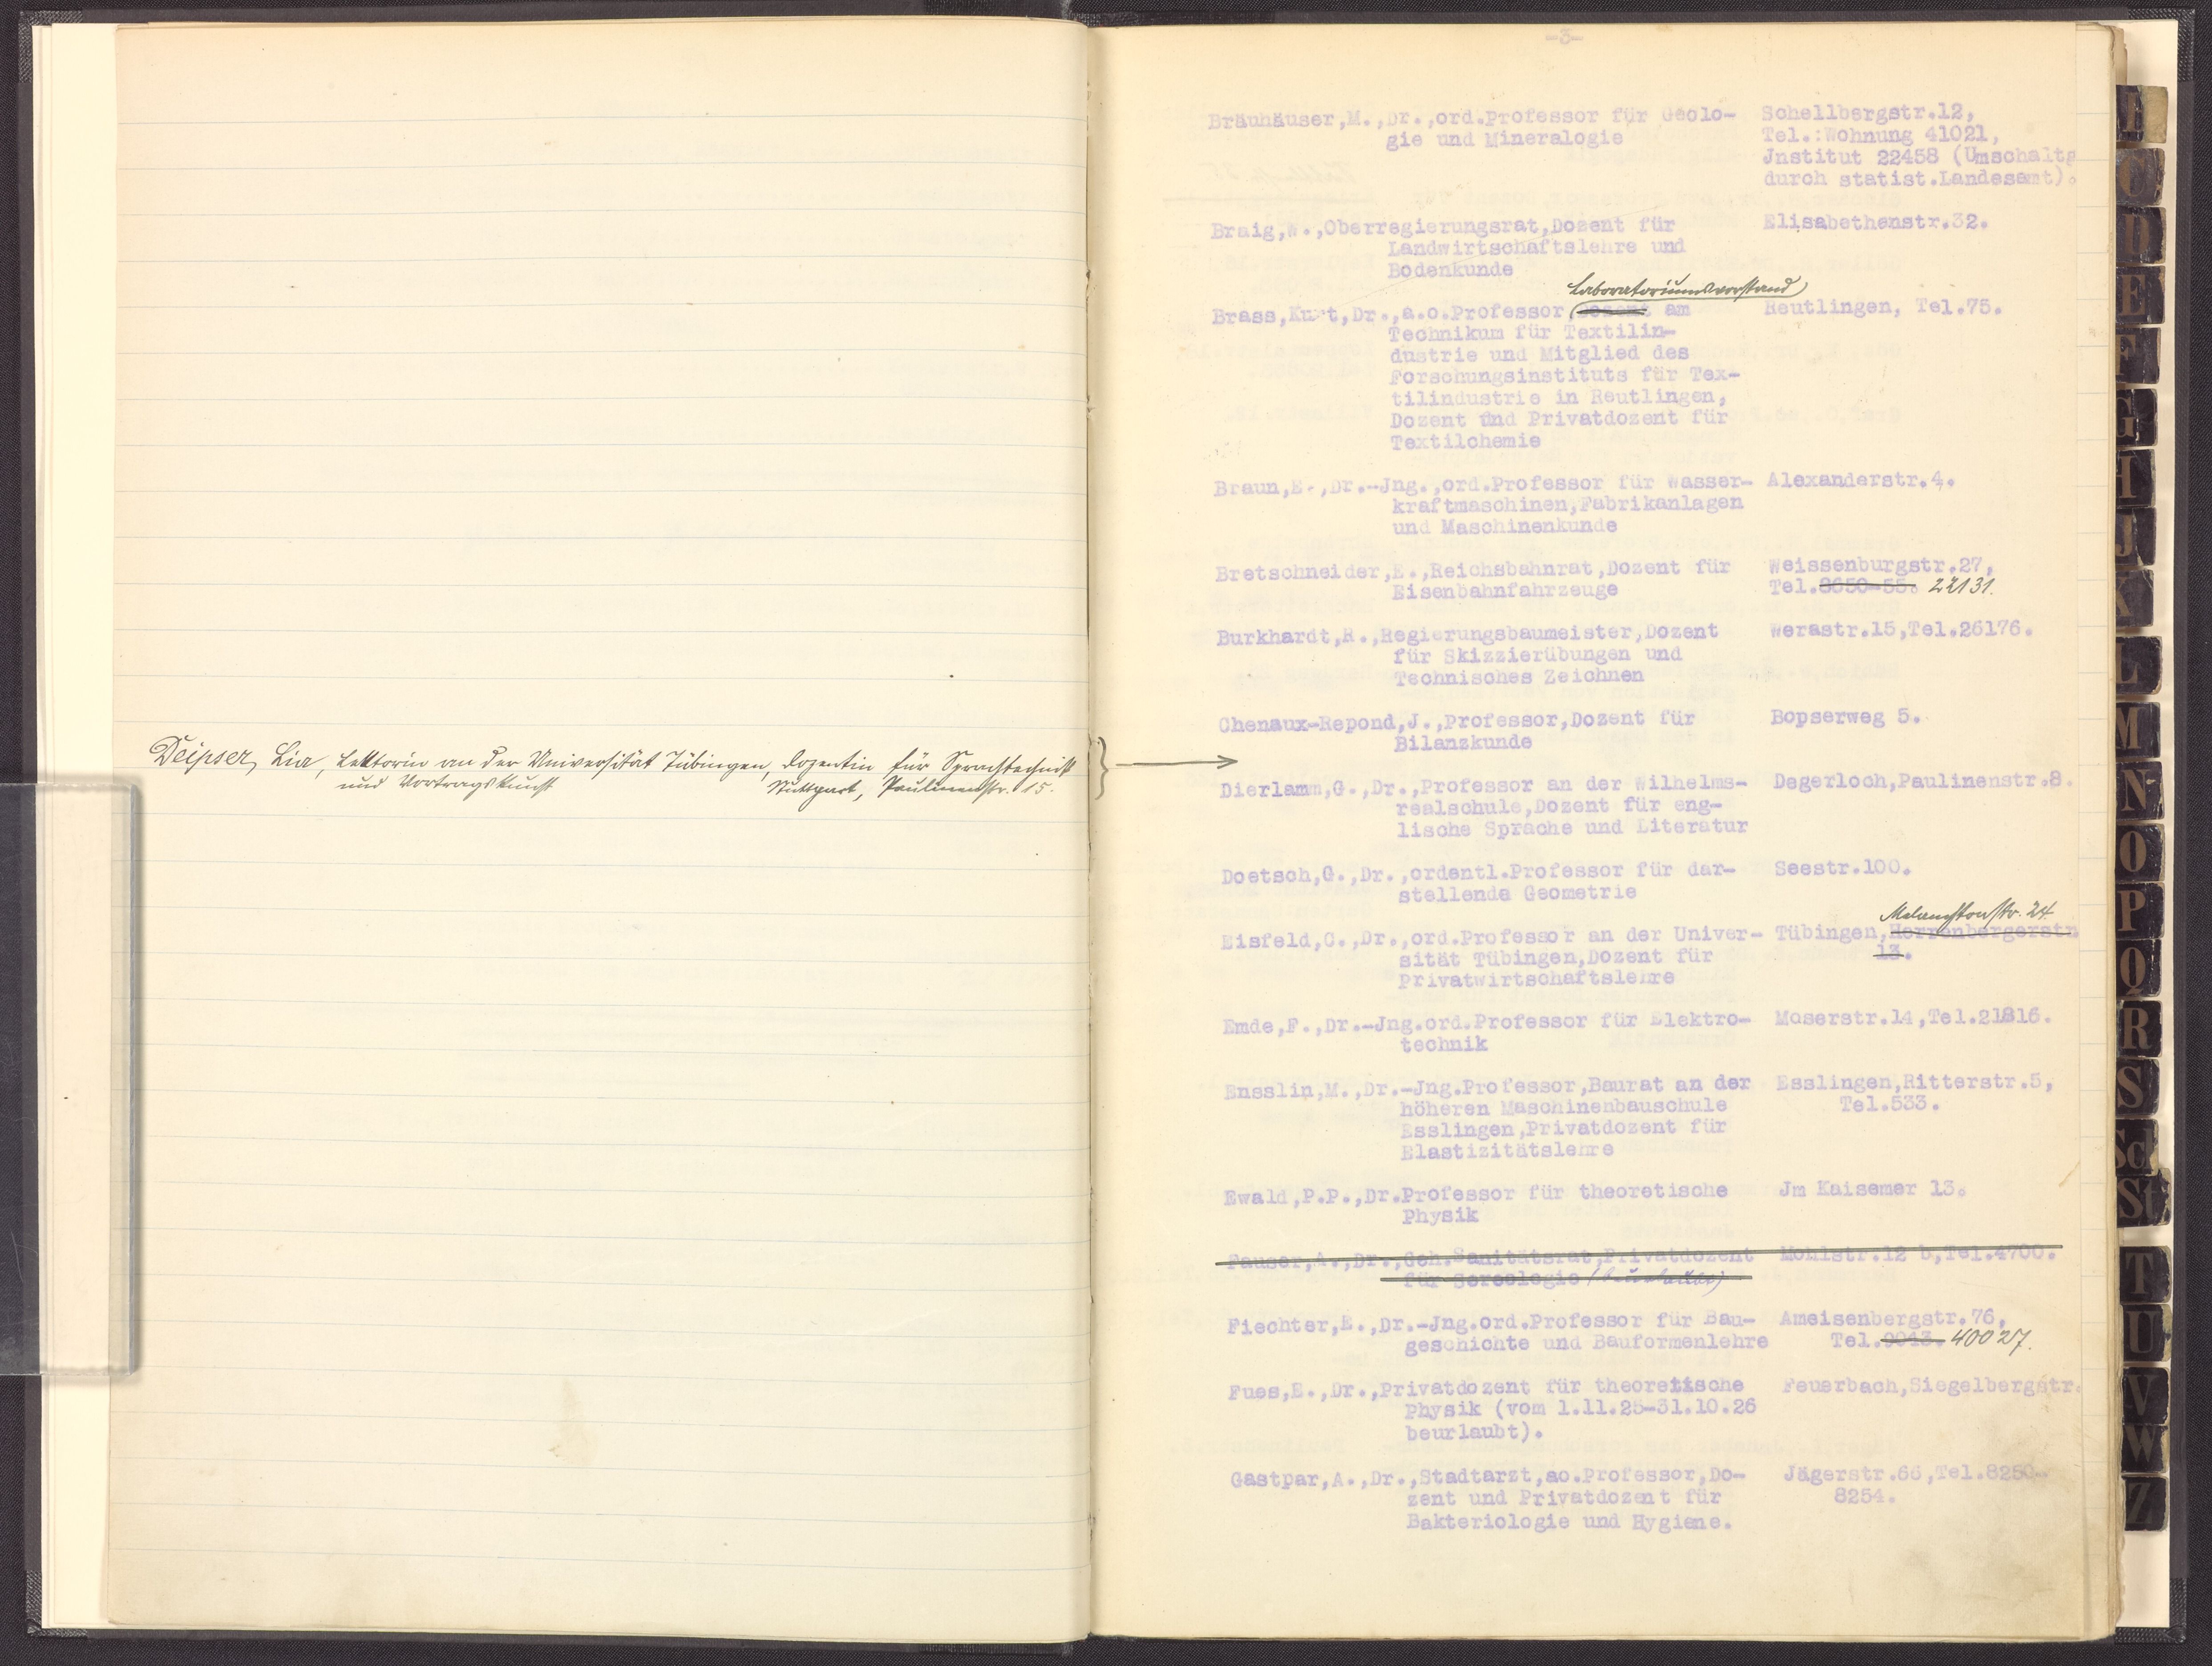 Deipser, Lia, Lektorin an der Universität Tübingen, Dozentin für Sprachtechnik
und Vortragskunst Stuttgart, Paulinenstr. 15.
-3-
Bräuhäuser,M.,Dr.,ord.Professor für Geolo- Schellbergstr.12,
gie und Mineralogie Tel.:Wohnung 41021,
Jnstitut 22458 (Umschaltg
durch statist.Landesamt).
Braig,W.,Oberregierungsrat,Dozent für Elisabethenstr.32.
Landwirtschaftslehre und
Bodenkunde
Laboratoriumsvorstand
Brass,Kurt,Dr.,a.o.Professor (Dozent am Reutlingen, Tel.75.
Technikum für Textilin-
dustrie und Mitglied des
Forschungsinstituts für Tex-
tilindustrie in Reutlingen,
Dozent und Privatdozent für
Textilchemie
Braun,E.,Dr.-Jng.,ord.Professor für Wasser- Alexanderstr.4.
kraftmaschinen,Fabrikanlagen
und Maschinenkunde
Bretschneider,E.,Reichsbahnrat,Dozent für Weissenburgstr.27,
Eisenbahnfahrzeuge Tel.8650-55. 22131.
Burkhardt,R.,Regierungsbaumeister,Dozent Werastr.15,Tel.26176.
für Skizzierübungen und
Technisches Zeichnen
Chenaux-Repond,J.,Professor,Dozent für Bopserweg 5.
Bilanzkunde
Dierlamm,G.,Dr.,Professor an der Wilhelms- Degerloch,Paulinenstr.8.
realschule,Dozent für eng-
lische Sprache und Literatur
Doetsch,G.,Dr.,ordentl.Professor für dar- Seestr.100.
stellende Geometrie
Melanchtonstr. 24
Eisfeld,C.,Dr.,ord.Professor an der Univer- Tübingen,Herrenbergerstr
sität Tübingen,Dozent für 13.
Privatwirtschaftslehre
Emde,F.,Dr.-Jng.ord.Professor für Elektro- Moserstr.14,Tel.21816.
technik
Ensslin,M.,Dr.-Jng.Professor,Baurat an der Esslingen,Ritterstr.5,
höheren Maschinenbauschule Tel.533.
Esslingen,Privatdozent für
Elastizitätslehre
Ewald,P.P.,Dr.Professor für theoretische Jm Kaisemer 13.
Physik
Fauser,A.,Dr.,Geh.Sanitätsrat,Privatdozent Mohlstr.12 b,Tel.4700.
für Sereologie (beurlaubt)
Fiechter,E.,Dr.-Jng.ord.Professor für Bau- Ameisenbergstr.76,
geschichte und Bauformenlehre Tel.9013. 40027.
Fues,E.,Dr.,Privatdozent für theoretische Feuerbach,Siegelbergstr.
Physik (vom 1.11.25-31.10.26
beurlaubt).
Gastpar,A.,Dr.,Stadtarzt,ao.Professor,Do- Jägerstr.66,Tel.8250-
zent und Privatdozent für 8254.
Bakteriologie und Hygiene.
C
D
E
F
G
H
J
K
L
M
N
O
P
Q
R
S
Sch
St
T
U
V
W
Z